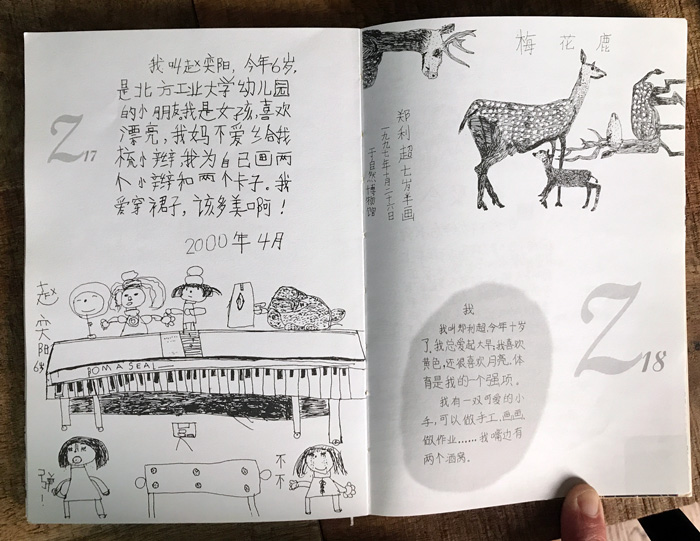 我叫赵奕阳,今年6岁,
是北方工业大学幼儿园
的小朋友,我是女孩,喜欢
漂亮,我妈不爱给我
梳小辫,我为自己画两
个小辫和两个卡子。我
爱穿裙子,该多美啊!
2000年4月
Z17
赵奕阳6岁
POMASEAL
弹!
不不
梅花鹿
郑利超七岁半画
一九九七年十月二十六日
于自然博物馆
Z18
我
我叫郑利超,今年十岁
了,我总爱起大早,我喜欢
黄色,还很喜欢月亮。体
育是我的一个强项。
我有一双可爱的小
手,可以做手工、画画
做作业……我嘴边有
两个酒窝。